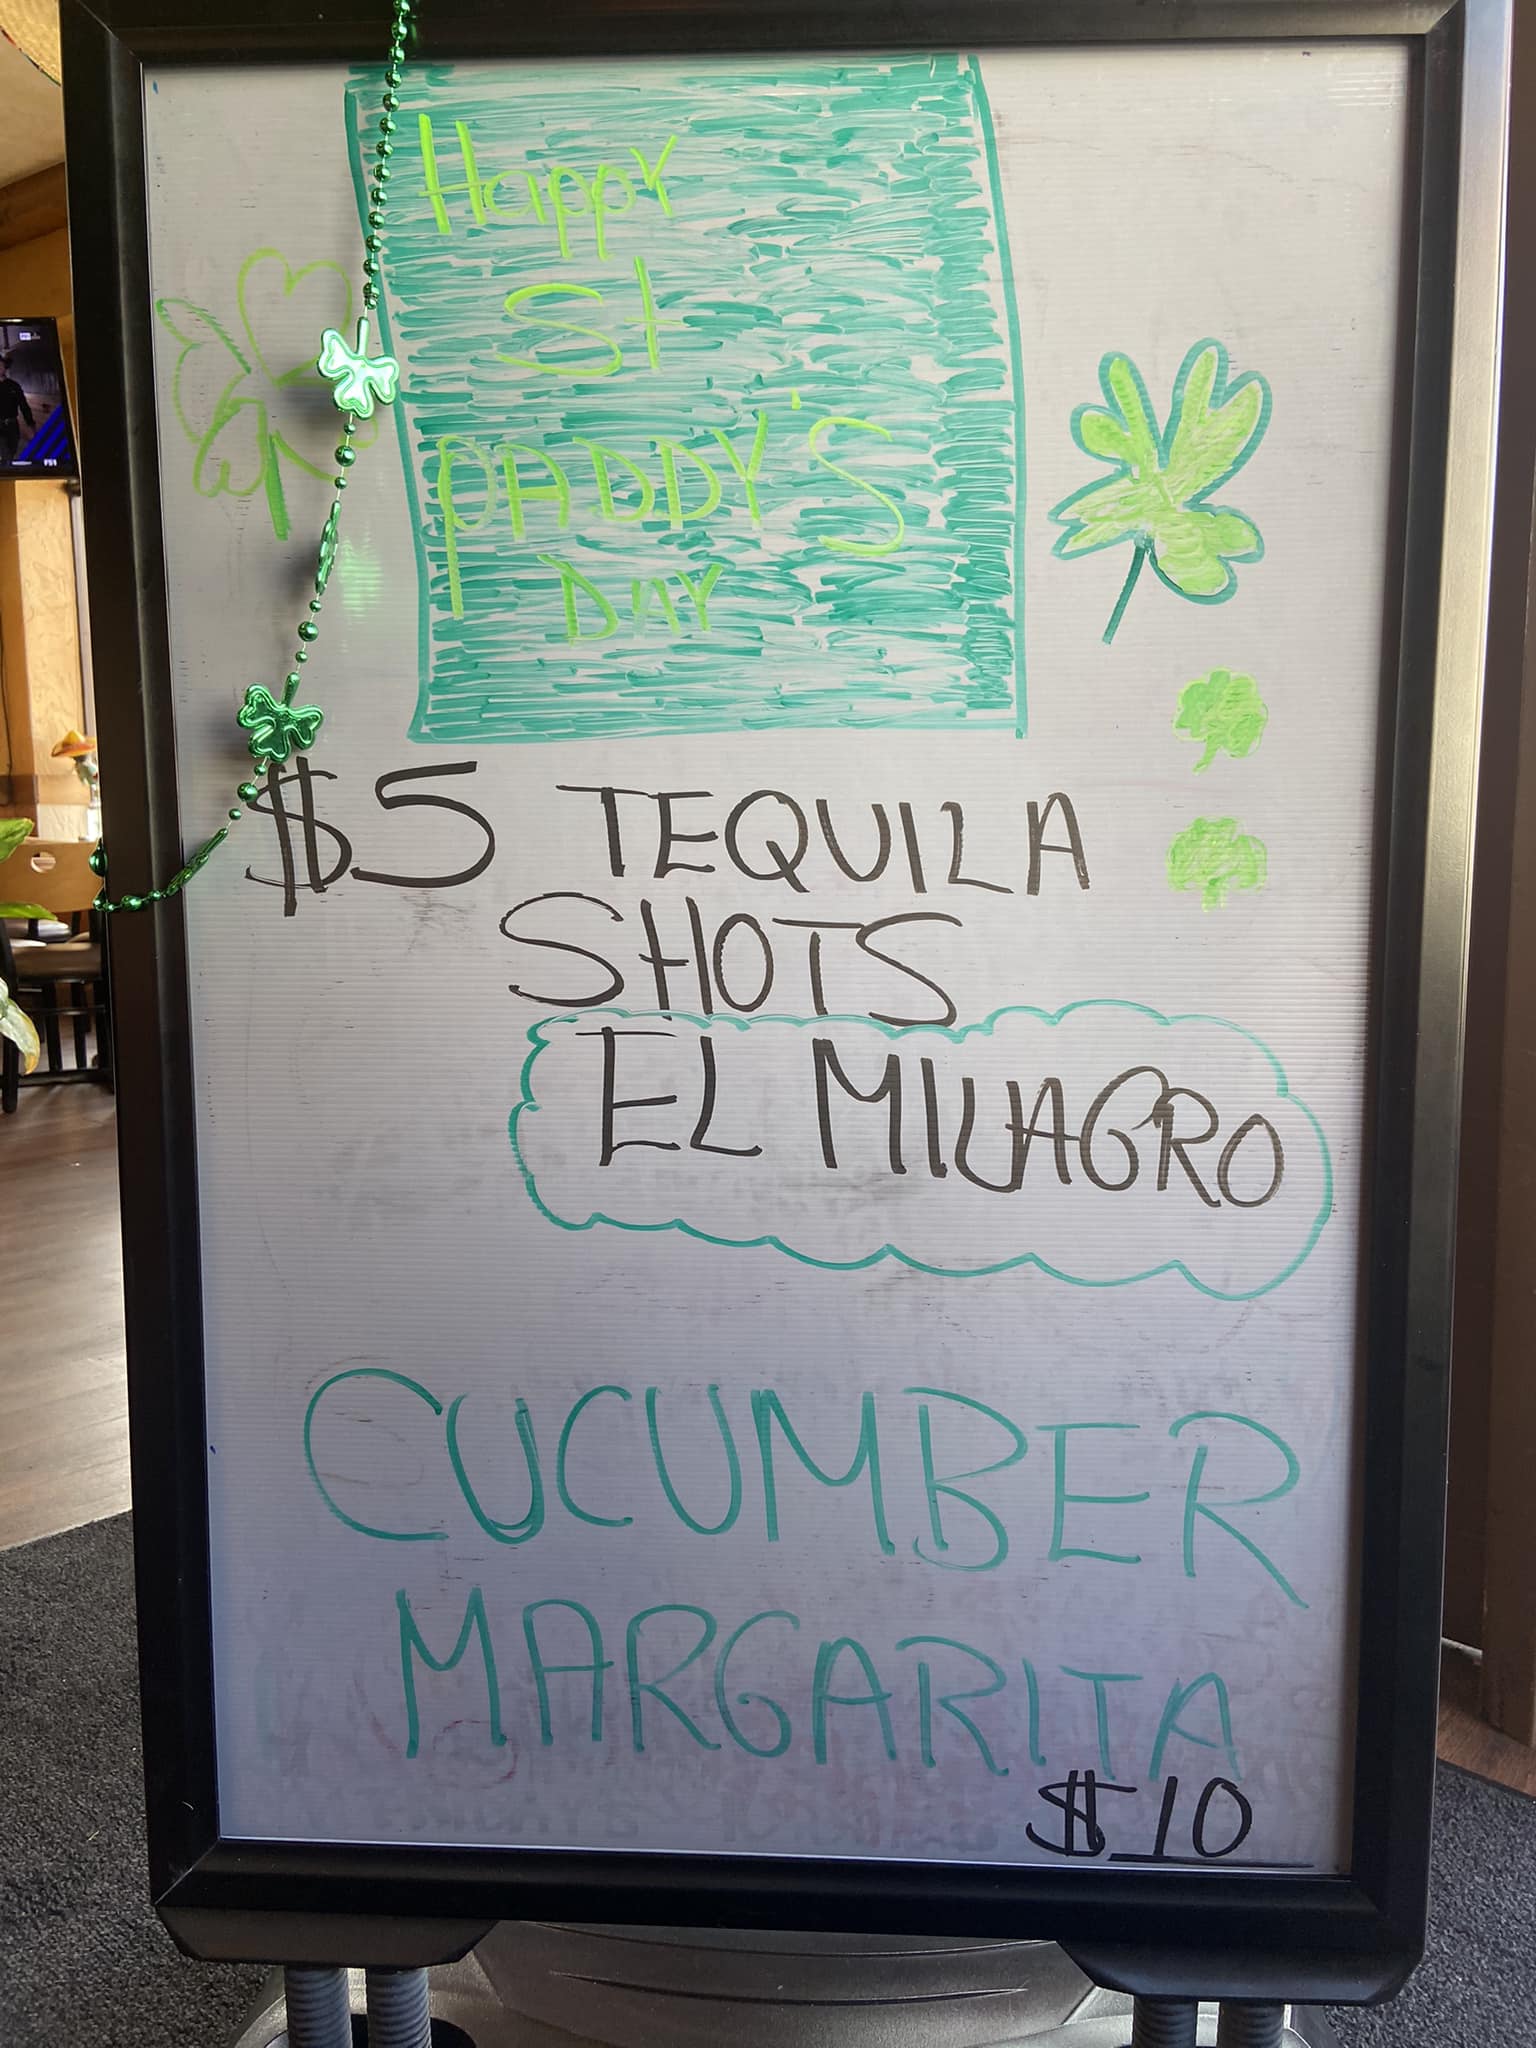 Happy
St
PADDY'S
DAY
$5 TEQUILA
SHOTS
EL MILAGRO
CUCUMBER
MARGARITA
$10
FS1